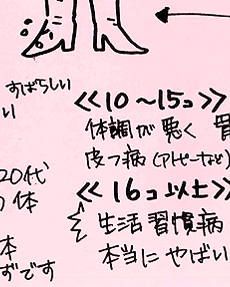 すばらしい
い
《10～15コ》
体調が悪く 胃
皮フ病(アトピーなど)
20代
の体
《16コ以上》
生活習慣病
本当にやばい
本
ずです